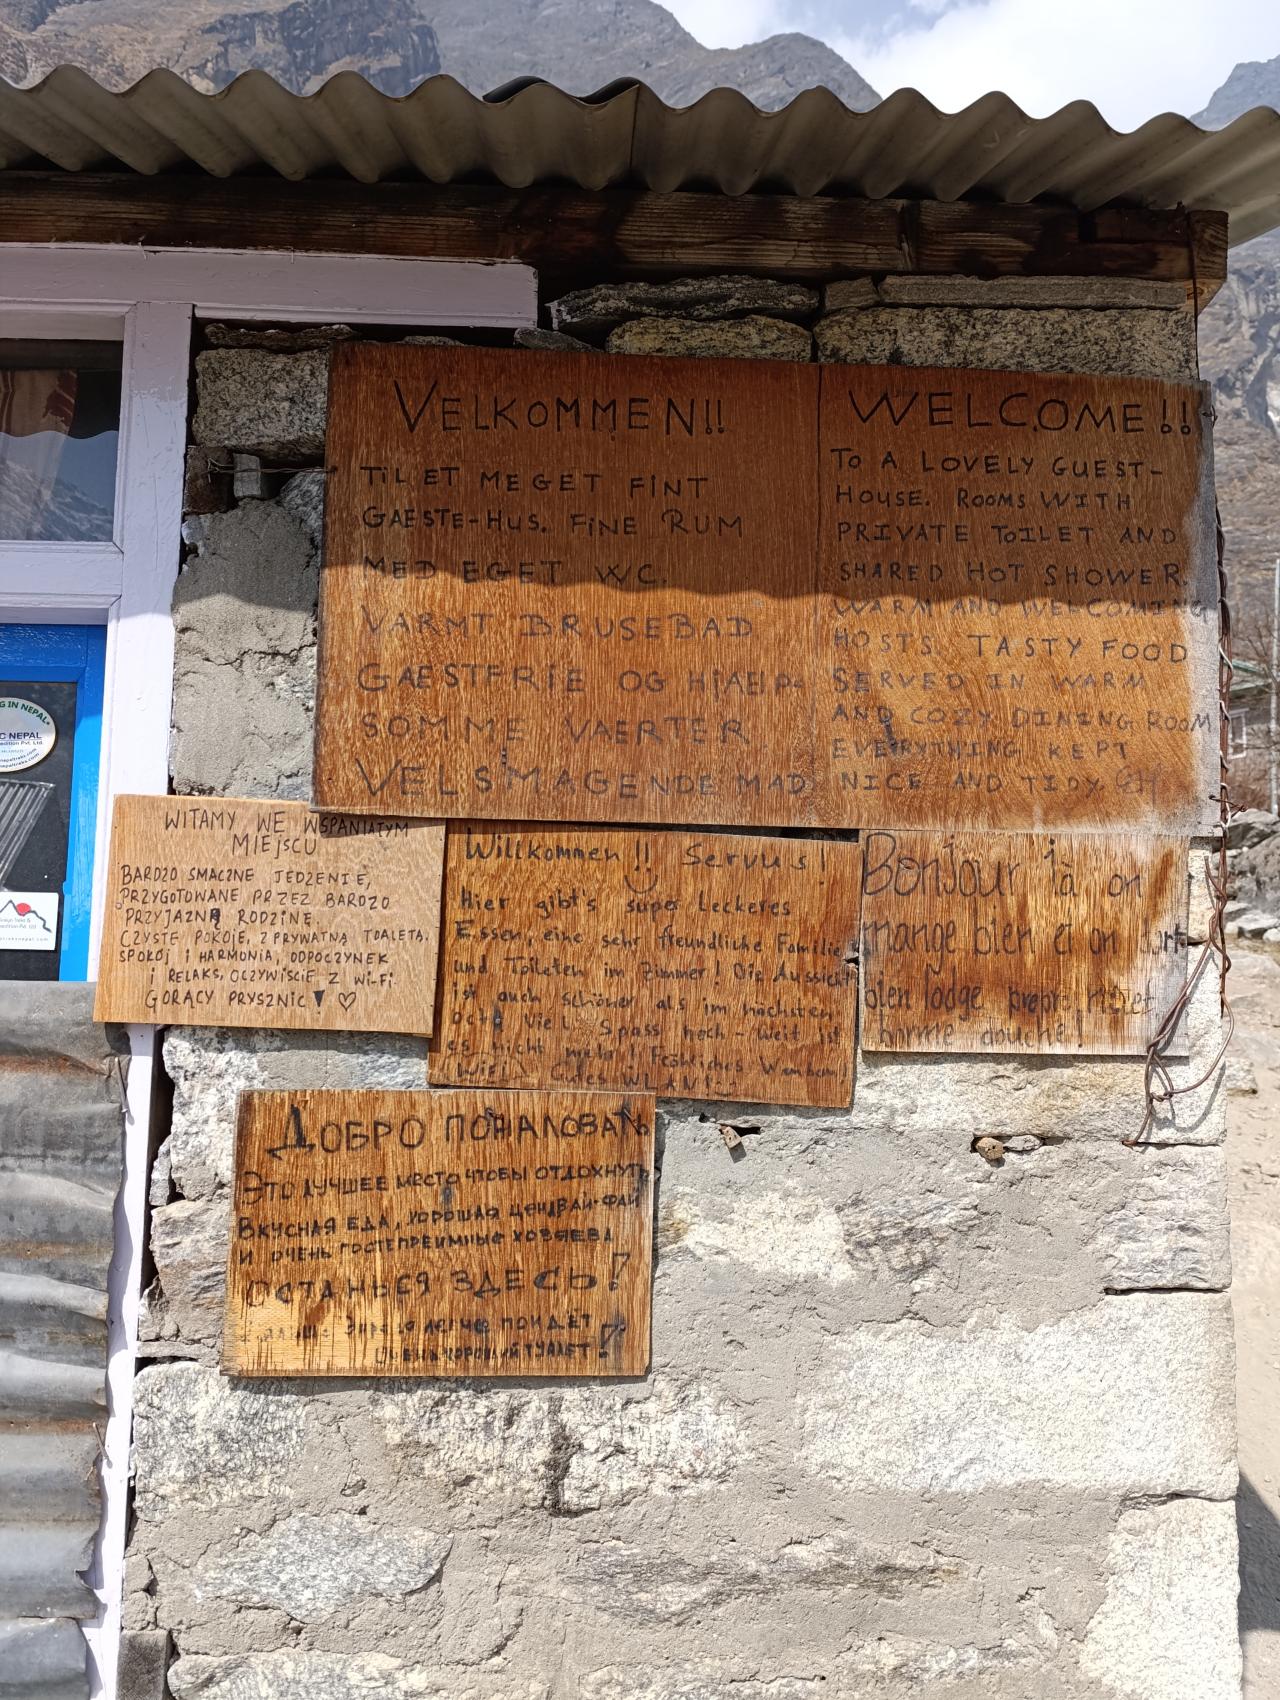 VELKOMMEN!!
TIL ET MEGET FINT
GAESTE-HUS. FINE RUM
MED EGET WC.
VARMT BRUSEBAD
GAESTFRIE OG HJAELP-
SOMME VAERTER.
VELSMAGENDE MAD
WELCOME!!
TO A LOVELY GUEST-
HOUSE. ROOMS WITH
PRIVATE TOILET AND
SHARED HOT SHOWER.
WARM AND WELCOMING
HOSTS. TASTY FOOD
SERVED IN WARM
AND COZY DINING ROOM
EVERYTHING KEPT
NICE AND TIDY.
WITAMY WE WSPANIATYM
MIEJSCU
BARDZO SMACZNE JEDZENIE,
PRZYGOTOWANE PRZEZ BARDZO
PRZYJAZNĄ RODZINE.
CZYSTE POKOJE, Z PRYWATNĄ TOALETĄ.
SPOKÓJ I HARMONIA, ODPOCZYNEK
I RELAKS, OCZYWIŚCIE Z Wi-Fi.
GORĄCY PRYSZNIC! ♡
Willkommen!! Servus!
Hier gibt's super Leckeres
Essen, eine sehr freundliche Familie
und Toileten im Zimmer! Die Aussicht
ist auch schöner als im nächsten
Viel Spass noch - Weit ist
es nicht mehr! Fröhliches
WiFi Gutes WLAN!
Bonjour là on
mange bien et on dort
bien lodge propre
bonne douche!
ДОБРО ПОЖАЛОВАТЬ
ЭТО ЛУЧШЕЕ МЕСТО ЧТОБЫ ОТДОХНУТЬ
ВКУСНАЯ ЕДА, ХОРОШАЯ ЦЕНА ВАЙ-ФАЙ
И ОЧЕНЬ ГОСТЕПРЕИМНЫЕ ХОЗЯЕВА
ОСТАНЬСЯ ЗДЕСЬ!
ЛЕГЧЕ ПОЙДЁТ
ОЧЕНЬ ХОРОШИЙ ТУАЛЕТ!
G IN NEPAL
C NEPAL